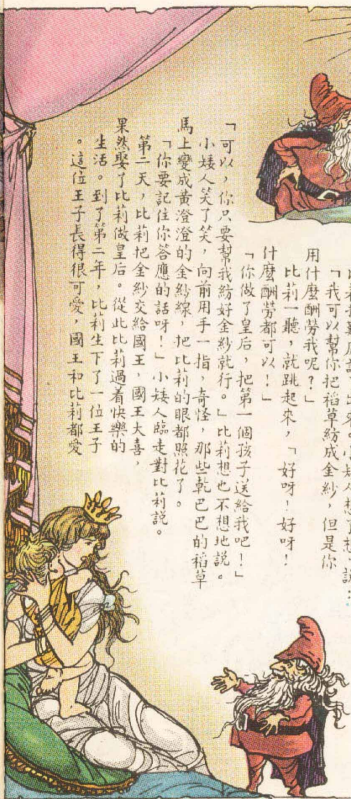 「我可以幫你把稻草紡成金紗，但是你
用什麼酬勞我呢？」
比莉一聽，就跳起來，「好呀！好呀！
什麼酬勞都可以！」
「你做了皇后，把第一個孩子送給我吧！」
「可以，你只要幫我紡好金紗就行。」比莉想也不想地說。
小矮人笑了笑，向前用手一指，奇怪，那些乾巴巴的稻草
馬上變成黃澄澄的金紗線，把比莉的眼都照花了。
「你要記住你答應的話呀！」小矮人臨走對比莉說。
第二天，比莉把金紗交給國王，國王大喜，
果然娶了比莉做皇后。從此比莉過着快樂的
生活。到了第二年，比莉生下了一位王子
。這位王子長得很可愛，國王和比莉都愛